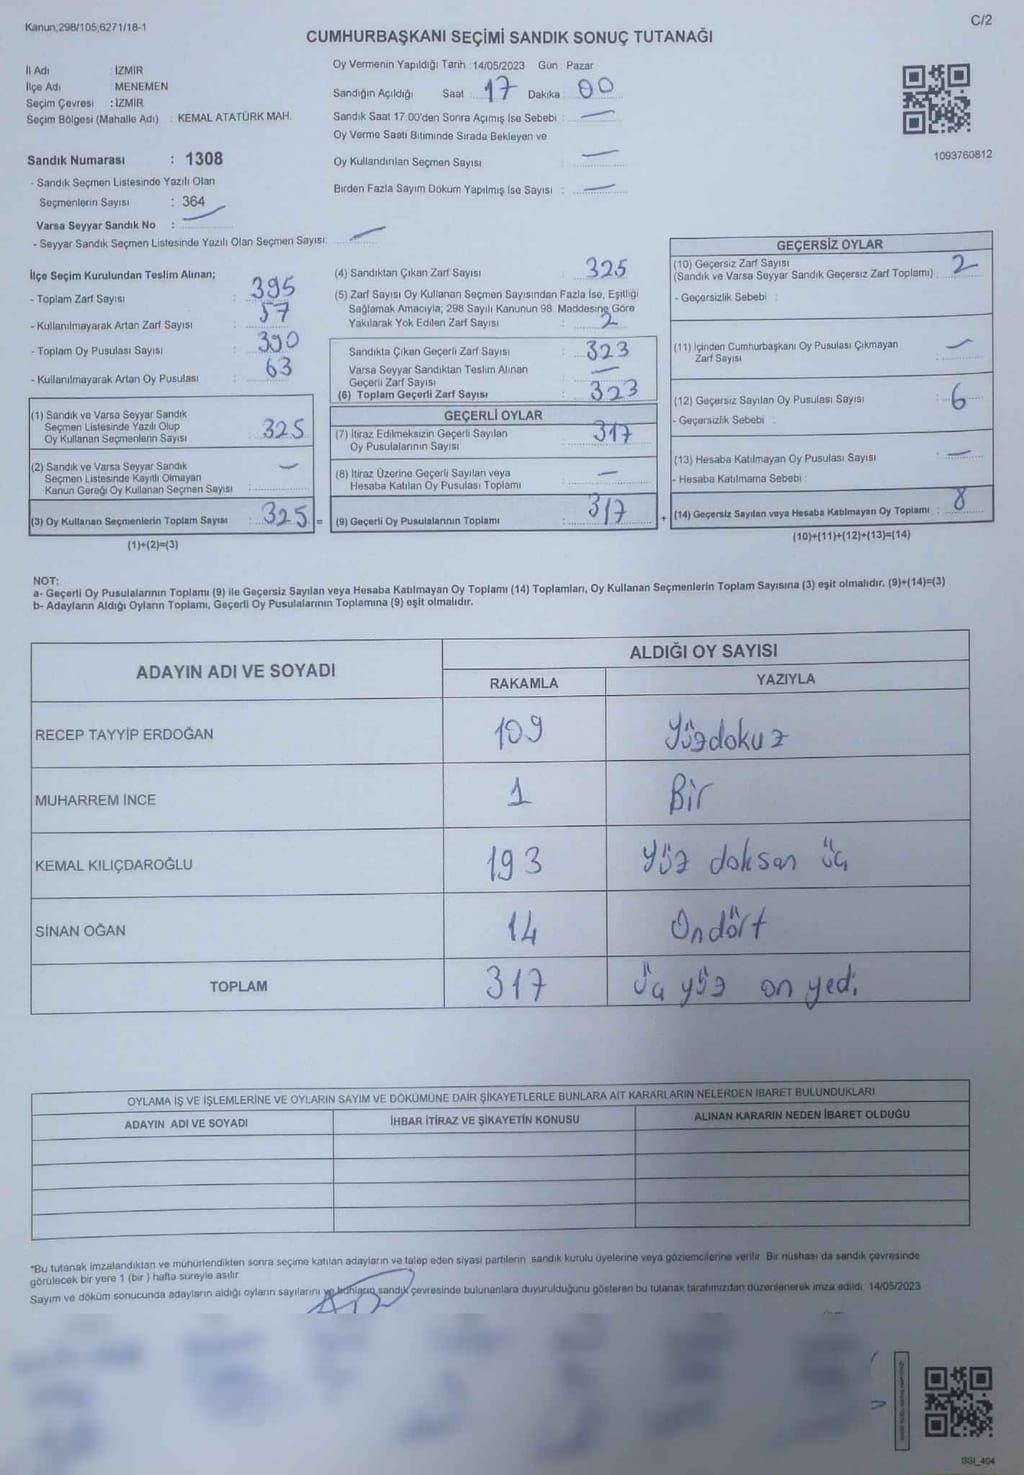 Kanun,298/105,6271/18-1
C/2
CUMHURBAŞKANI SEÇİMİ SANDIK SONUÇ TUTANAĞI
İl Adı : İZMİR
İlçe Adı : MENEMEN
Seçim Çevresi : İZMİR
Seçim Bölgesi (Mahalle Adı) : KEMAL ATATÜRK MAH.
Oy Vermenin Yapıldığı Tarih : 14/05/2023 Gün : Pazar
Sandığın Açıldığı Saat : 17 Dakika : 00
Sandık Saat 17:00'den Sonra Açımış İse Sebebi : —
Oy Verme Saati Bitiminde Sırada Bekleyen ve
Oy Kullandırılan Seçmen Sayısı : —
Birden Fazla Sayım Döküm Yapılmış İse Sayısı : —
1093760812
Sandık Numarası : 1308
- Sandık Seçmen Listesinde Yazılı Olan
Seçmenlerin Sayısı : 364
Varsa Seyyar Sandık No : —
- Seyyar Sandık Seçmen Listesinde Yazılı Olan Seçmen Sayısı: —
İlçe Seçim Kurulundan Teslim Alınan;
- Toplam Zarf Sayısı : 395
- Kullanılmayarak Artan Zarf Sayısı : 57
- Toplam Oy Pusulası Sayısı : 390
- Kullanılmayarak Artan Oy Pusulası : 63
(1) Sandık ve Varsa Seyyar Sandık
Seçmen Listesinde Yazılı Olup
Oy Kullanan Seçmenlerin Sayısı : 325
(2) Sandık ve Varsa Seyyar Sandık
Seçmen Listesinde Kayıtlı Olmayan
Kanun Gereği Oy Kullanan Seçmen Sayısı : —
(3) Oy Kullanan Seçmenlerin Toplam Sayısı : 325 =
(1)+(2)=(3)
(4) Sandıktan Çıkan Zarf Sayısı : 325
(5) Zarf Sayısı Oy Kullanan Seçmen Sayısından Fazla İse, Eşitliği
Sağlamak Amacıyla; 298 Sayılı Kanunun 98. Maddesine Göre
Yakılarak Yok Edilen Zarf Sayısı : 2
Sandıkta Çıkan Geçerli Zarf Sayısı : 323
Varsa Seyyar Sandıktan Teslim Alınan
Geçerli Zarf Sayısı : —
(6) Toplam Geçerli Zarf Sayısı : 323
GEÇERLİ OYLAR
(7) İtiraz Edilmeksizin Geçerli Sayılan
Oy Pusulalarının Sayısı : 317
(8) İtiraz Üzerine Geçerli Sayılan veya
Hesaba Katılan Oy Pusulası Toplamı : —
(9) Geçerli Oy Pusulalarının Toplamı : 317 +
GEÇERSİZ OYLAR
(10) Geçersiz Zarf Sayısı
(Sandık ve Varsa Seyyar Sandık Geçersiz Zarf Toplamı) : 2
- Geçersizlik Sebebi :
(11) İçinden Cumhurbaşkanı Oy Pusulası Çıkmayan
Zarf Sayısı : —
(12) Geçersiz Sayılan Oy Pusulası Sayısı : 6
- Geçersizlik Sebebi :
(13) Hesaba Katılmayan Oy Pusulası Sayısı : —
- Hesaba Katılmama Sebebi :
(14) Geçersiz Sayılan veya Hesaba Katılmayan Oy Toplamı : 8
(10)+(11)+(12)+(13)=(14)
NOT:
a- Geçerli Oy Pusulalarının Toplamı (9) ile Geçersiz Sayılan veya Hesaba Katılmayan Oy Toplamı (14) Toplamları, Oy Kullanan Seçmenlerin Toplam Sayısına (3) eşit olmalıdır. (9)+(14)=(3)
b- Adayların Aldığı Oyların Toplamı, Geçerli Oy Pusulalarının Toplamına (9) eşit olmalıdır.
ADAYIN ADI VE SOYADI ALDIĞI OY SAYISI
RAKAMLA YAZIYLA
RECEP TAYYİP ERDOĞAN 109 Yüzdokuz
MUHARREM İNCE 1 Bir
KEMAL KILIÇDAROĞLU 193 Yüz doksan üç
SİNAN OĞAN 14 Ondört
TOPLAM 317 Üç yüz on yedi
OYLAMA İŞ VE İŞLEMLERİNE VE OYLARIN SAYIM VE DÖKÜMÜNE DAİR ŞİKAYETLERLE BUNLARA AİT KARARLARIN NELERDEN İBARET BULUNDUKLARI
ADAYIN ADI VE SOYADI İHBAR İTİRAZ VE ŞİKAYETİN KONUSU ALINAN KARARIN NEDEN İBARET OLDUĞU
*Bu tutanak imzalandıktan ve mühürlendikten sonra seçime katılan adayların ve talep eden siyasi partilerin sandık kurulu üyelerine veya gözlemcilerine verilir. Bir nüshası da sandık çevresinde
görülecek bir yere 1 (bir ) hafta süreyle asılır.
Sayım ve döküm sonucunda adayların aldığı oyların sayılarını ve sandık çevresinde bulunanlara duyurulduğunu gösteren bu tutanak tarafımızdan düzenlenerek imza edildi. 14/05/2023
SSI_404